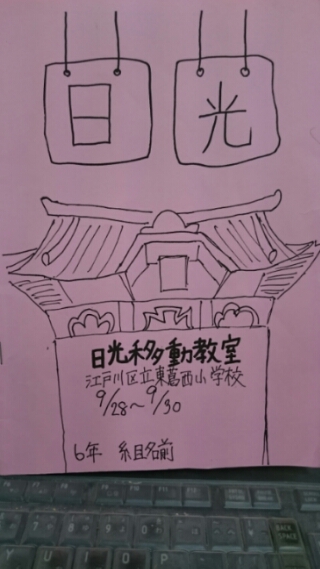 日光
日光移動教室
江戸川区立東葛西小学校
9/28～9/30
6年 組名前
BACK SPACE
7 8 9 0
Y U I O P